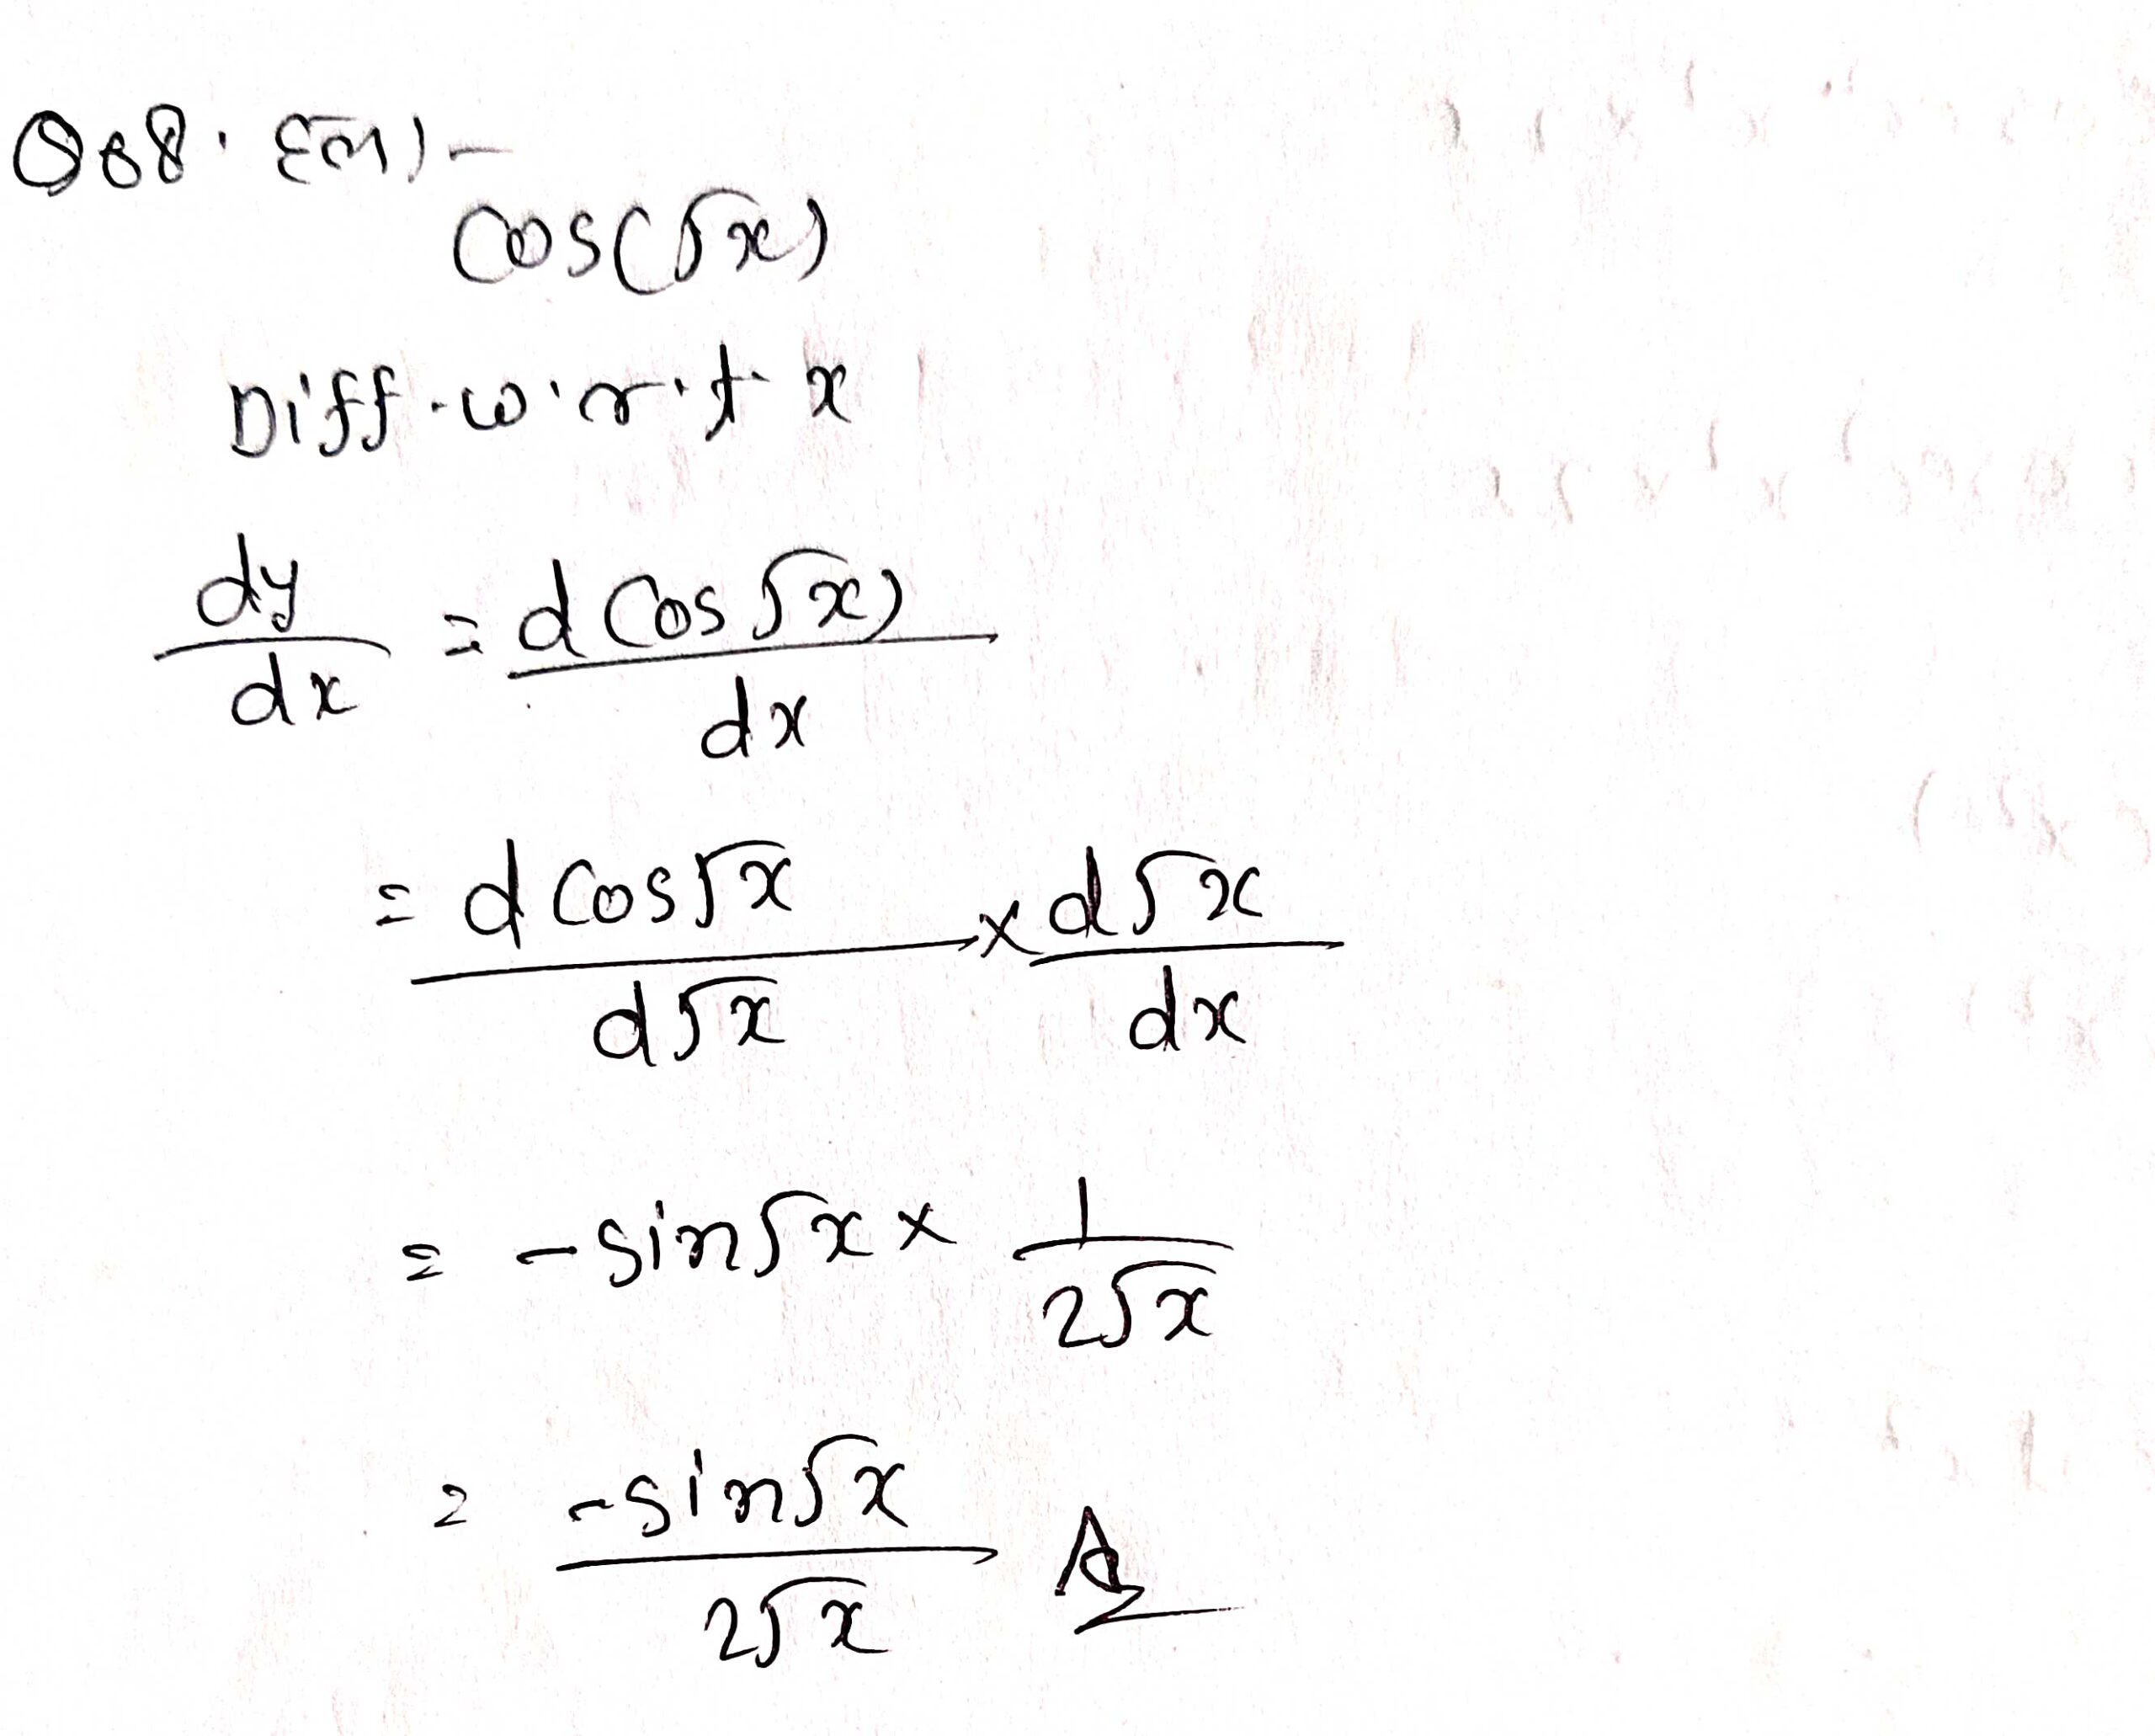 Q08. हल)-
cos(√x)
Diff.w.r.t. x
dy/dx = d cos√x)/dx
= d cos√x/d√x × d√x/dx
= -sin√x × 1/2√x
= -sin√x/2√x A